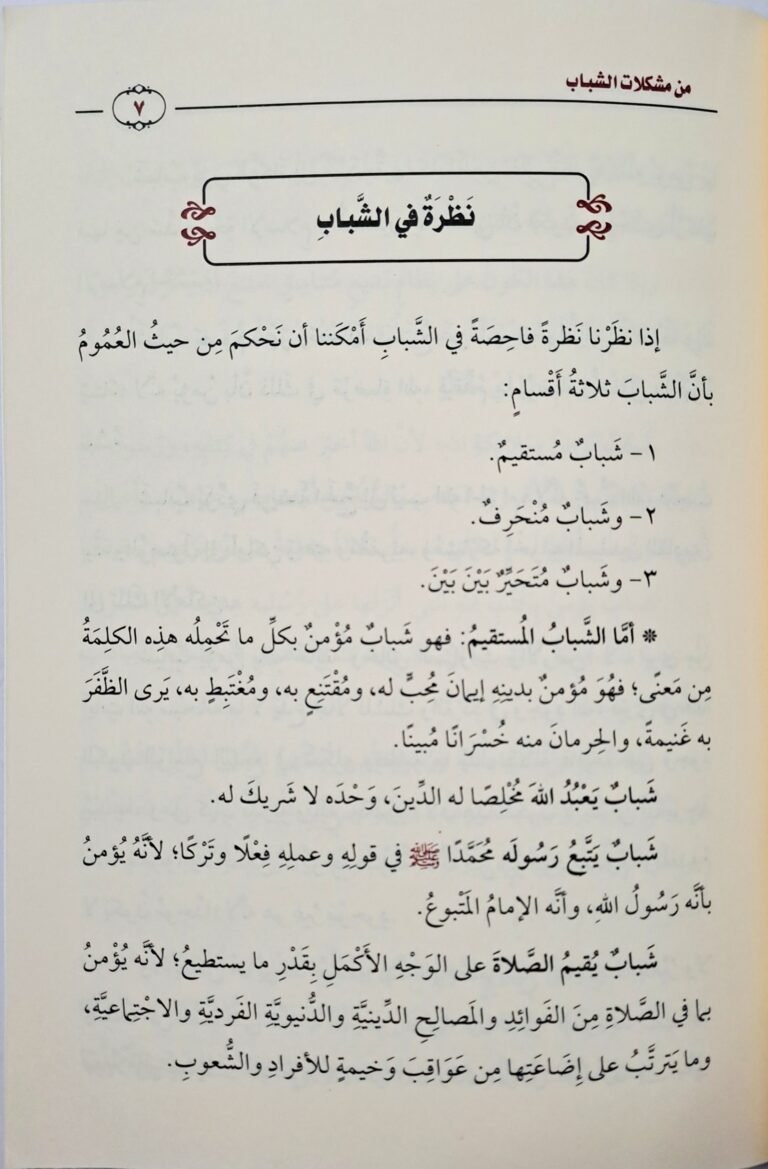 من مشكلات الشباب
٧
نَظْرَةٌ في الشَّبابِ
إذا نظَرْنا نَظرةً فاحِصَةً في الشَّبابِ أَمْكَننا أن نَحْكمَ مِن حيثُ العُمُومُ
بأنَّ الشَّبابَ ثلاثةُ أَقْسامٍ:
١- شَبابٌ مُستقيمٌ.
٢- وشَبابٌ مُنْحَرِفٌ.
٣- وشَبابٌ مُتَحَيِّرٌ بَيْنَ بَيْنَ.
* أمَّا الشَّبابُ المُستقيمُ: فهو شَبابٌ مُؤْمنٌ بكلِّ ما تَحْمِلُه هذِه الكلِمَةُ
مِن مَعنًى؛ فهُوَ مُؤمنٌ بدينِهِ إيمانَ مُحِبٍّ له، ومُقْتَنِعٍ به، ومُغْتَبِطٍ به، يَرى الظَّفَرَ
به غَنيمةً، والحِرمانَ منه خُسْرَانًا مُبينًا.
شَبابٌ يَعْبُدُ اللهَ مُخْلِصًا له الدِّينَ، وَحْدَه لا شَريكَ له.
شَبابٌ يَتَّبعُ رَسُولَه مُحَمَّدًا ﷺ في قولِهِ وعملِهِ فِعْلًا وتَرْكًا؛ لأنَّهُ يُؤمنُ
بأنَّه رَسُولُ اللهِ، وأنَّه الإمامُ المَتْبوعُ.
شَبابٌ يُقيمُ الصَّلاةَ على الوَجْهِ الأَكْمَلِ بِقَدْرِ ما يستطيعُ؛ لأنَّه يُؤْمنُ
بما في الصَّلاةِ مِنَ الفَوائِدِ والمَصالِحِ الدِّينيَّةِ والدُّنيويَّةِ الفَرديَّةِ والاجْتِماعيَّةِ،
وما يَترتَّبُ على إِضَاعَتِها مِن عَوَاقِبَ وَخيمةٍ للأفرادِ والشُّعوبِ.